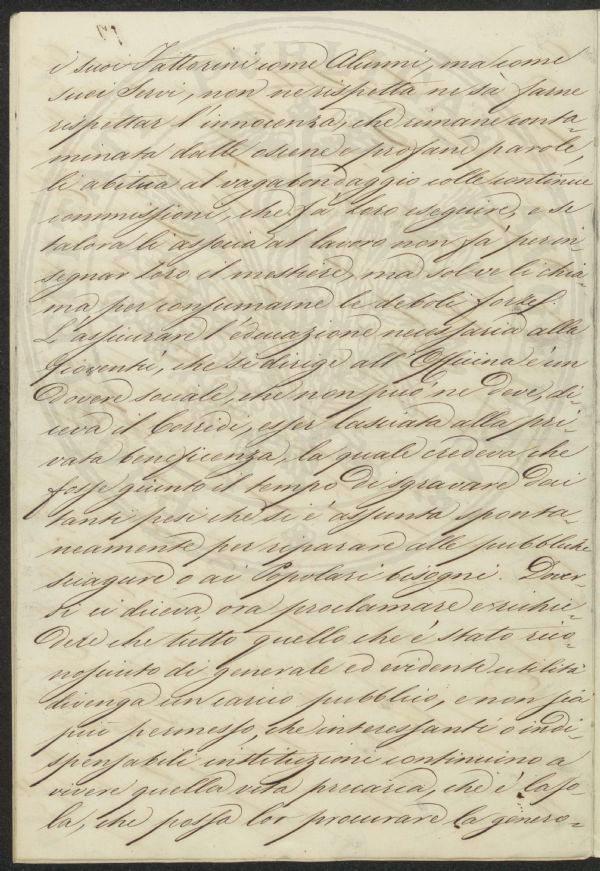 i suoi Fattorini come Alunni, ma come
suoi Servi, non ne rispetta ne sà farne
rispettar l'innocenza, che rimane conta-
minata dalle oscene e profane parole,
li abitua al vagabondaggio colle continue
commissioni, che fà loro eseguire, e se
talora li associa al lavoro non fà per in-
segnar loro il mestiere, ma solo e li chia-
ma per consumarne le deboli forze.
L'assicurare l'educazione necessaria alla
Gioventù, che si dirige all'Officina è un
Dovere sociale, che non può ne deve, di-
ceva il Corridi, esser lasciata alla pri-
vata beneficenza, la quale credeva che
fosse giunto il tempo di sgravare dai
tanti pesi che si è assunta sponta-
neamente per riparare alle pubbliche
sciagure o ai Popolari bisogni. Dover-
si ei diceva, ora proclamare e richie-
dere che tutto quello che è stato rico-
nosciuto di generale ed evidente utilità
divenga un carico pubblico, e non già
più permesso, che interessanti o indi-
spensabili instituzioni continuino a
vivere quella vita precaria, che è la so-
la, che possa lor procurare la genero-